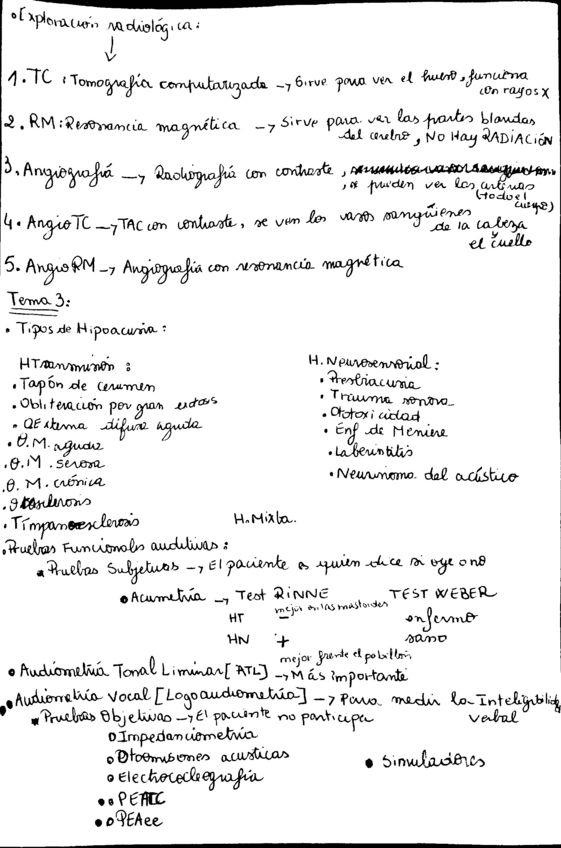 • Exploración radiológica:
↓
1. TC : Tomografía computarizada → Sirve para ver el hueso, funciona
con rayos X
2. RM: Resonancia magnética → Sirve para ver las partes blandas
del cerebro, NO Hay RADIACIÓN
3. Angiografía → Radiografía con contraste,
, se pueden ver las arterias
(todo el
cuerpo)
4. Angio TC → TAC con contraste, se ven los vasos sanguíenes
de la cabeza
y
el cuello
5. Angio RM → Angiografía con resonancia magnética
Tema 3:
• Tipos de Hipoacusia:
H Transmisión :
• Tapón de cerumen
• Obliteración por gran
• O Externa difusa aguda
• O.M. aguda
• O.M. serosa
• O. M. crónica
• Otosclerosis
• Timpanoesclerosis
H. Neurosensorial:
• Presbiacusia
• Trauma sonoro
• Ototoxicidad
• Enf de Meniere
• Laberintitis
• Neurinoma del acústico
H. Mixta.
• Pruebas Funcionales auditivas:
Pruebas Subjetivas → El paciente es quien dice si oye o no
• Acumetría → Test RINNE TEST WEBER
mejor en las mastoides
HT − enfermo
HN + sano
mejor frente el pabellón
• Audiometría Tonal Liminar [ATL] → Más importante
• Audiometría Vocal [Logoaudiometría] → Para medir la Inteligibilidad
verbal
Pruebas Objetivas → El paciente no participa
Impedanciometría
Otoemisiones acusticas
• Simuladores
Electrococleografía
• PEATC
• PEAee